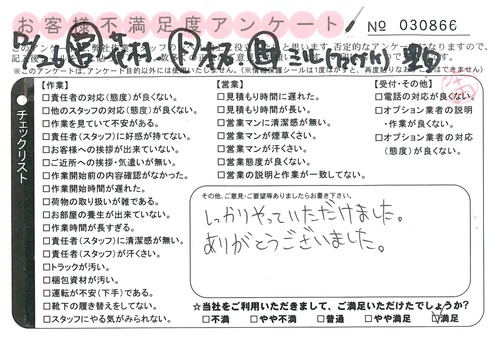 お客様不満足度アンケート
No 030866
※このアンケートは、アンケート目的以外には使用いたしません。
チェックリスト
【作業】
□責任者の対応(態度)が良くない。
□他のスタッフの対応(態度)が良くない。
□作業を見ていて不安がある。
□責任者(スタッフ)に好感が持てない。
□お客様への挨拶が出来ていない。
□ご近所への挨拶・気遣いが無い。
□作業開始前の内容確認がなかった。
□作業開始時間が遅れた。
□荷物の取り扱いが雑である。
□お部屋の養生が出来ていない。
□作業時間が長すぎる。
□責任者(スタッフ)に清潔感が無い。
□責任者(スタッフ)が汗くさい。
□トラックが汚い。
□梱包資材が汚い。
□運転が不安(下手)である。
□靴下の履き替えをしてない。
□スタッフにやる気がみられない。
【営業】
□見積もり時間に遅れた。
□見積もり時間が長い。
□営業マンに清潔感が無い。
□営業マンが煙草くさい。
□営業マンが汗くさい。
□営業態度が良くない。
□営業の説明と作業が一致してない。
【受付・その他】
□電話の対応が良くない。
□オプション業者の説明
・作業が良くない。
□オプション業者の対応
(態度)が良くない。
その他、ご意見・ご要望等ありましたらお書き下さい。
しっかりやっていただけました。
ありがとうございました。
☆当社をご利用いただきまして、ご満足いただけたでしょうか?
□不満 □やや不満 □普通 □やや満足 □満足